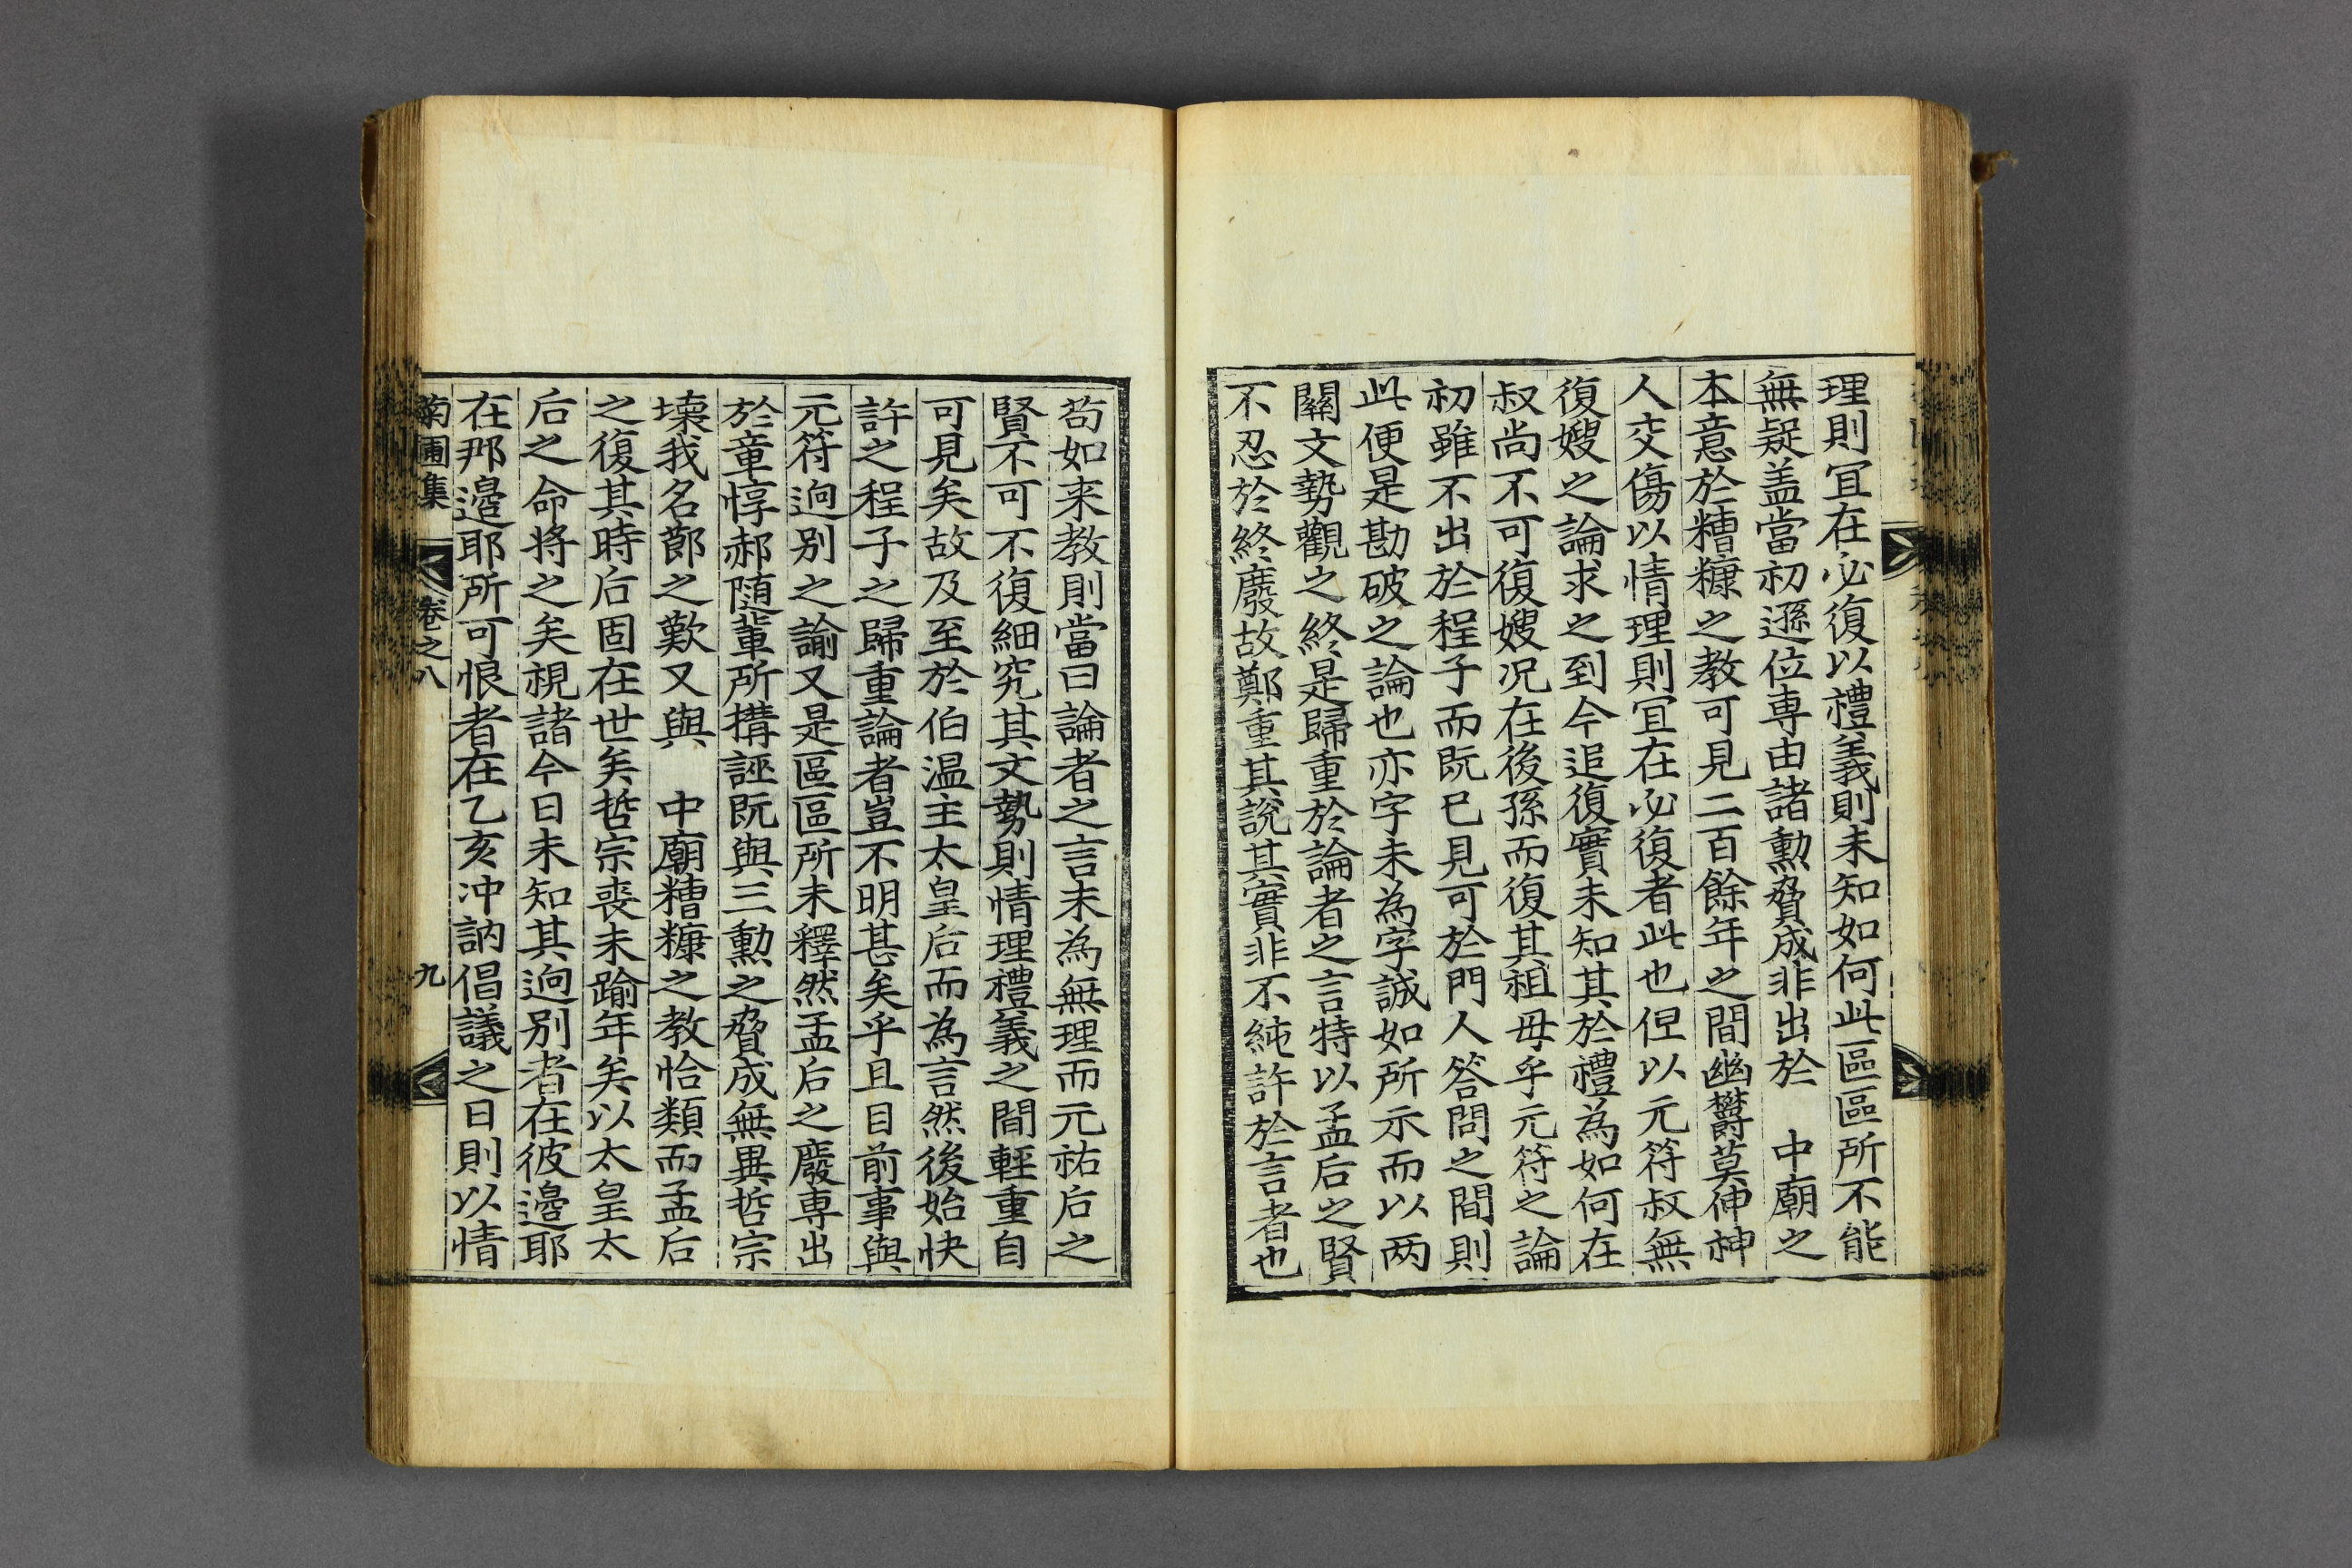 理則冝在必復以禮義則未知如何此區區所不能
無疑盖當初遜位専由諸勳脅成非出於　中廟之
本意於糟糠之教可見二百餘年之間幽欝莫伸神
人交傷以情理則冝在必復者此也但以元符叔無
復嫂之論求之到今追復實未知其於禮為如何在
叔尚不可復嫂况在後孫而復其祖母乎元符之論
初雖不出於程子而既已見可於門人答問之間則
此便是勘破之論也亦字未為字誠如所示而以两
關文勢觀之終是歸重於論者之言特以孟后之賢
不忍於終廢故鄭重其說其實非不純許於言者也
苟如来教則當曰論者之言未為無理而元祐后之
賢不可不復細究其文勢則情理禮義之間輕重自
可見矣故及至於伯温主太皇后而為言然後始快
許之程子之歸重論者豈不明甚矣乎且目前事與
元符逈别之諭又是區區所未釋然孟后之廢専出
於童惇郝随輩所搆誣既與三勳之脅成無異哲宗
壞我名節之歎又與　中廟糟糠之教恰類而孟后
之復其時后固在世矣哲宗喪未踰年矣以太皇太
后之命将之矣視諸今日未知其逈别者在彼邉耶
在那邉耶所可恨者在乙亥冲訥倡議之日則以情
菊圃集　卷之八　九